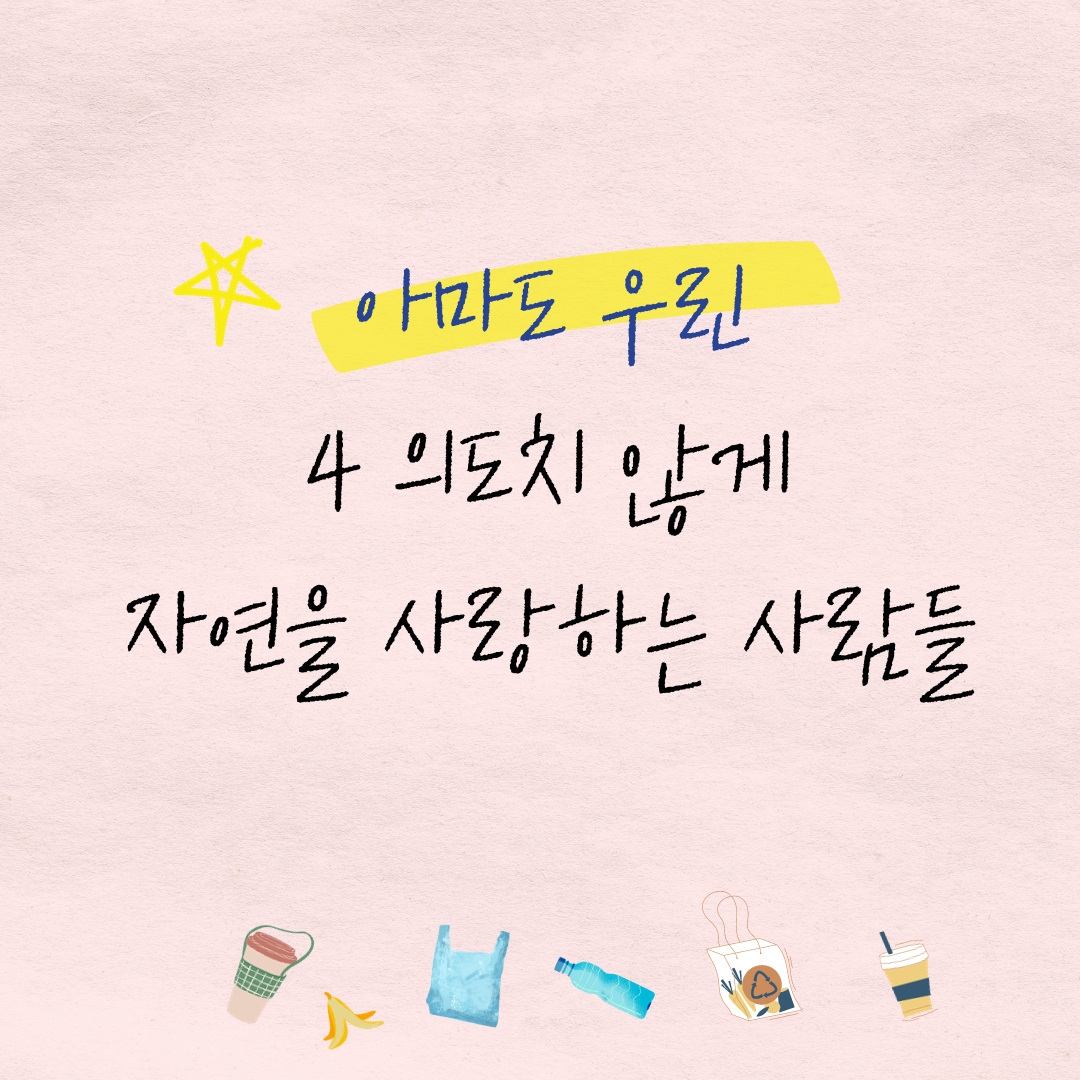 아마도 우린
4 의도치 않게
자연을 사랑하는 사람들